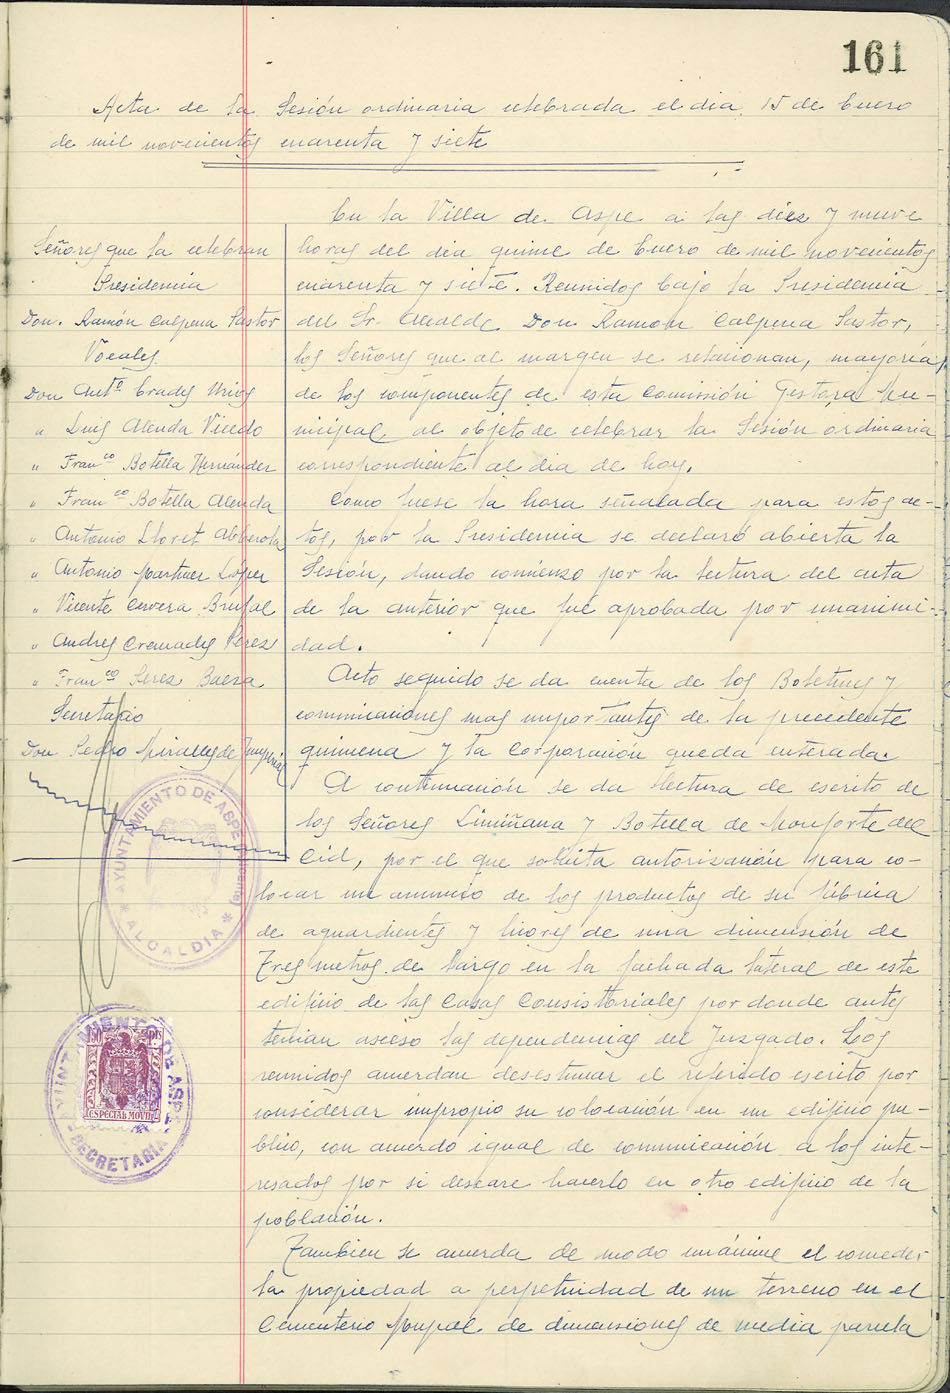 161
Acta de la Sesión ordinaria celebrada el dia 15 de Enero
de mil novecientos cuarenta y siete
Señores que la celebran
Presidencia
Don. Ramón Calpena Pastor
Vocales
Don Antº Cradis Urios
" Luis Alenda Vicedo
" Franco Botella Hernánder
" Franco Botella Alenda
" Antonio Lloret Alberola
" Antonio Martiner López
" Vicente Cervera Brufal
" Andres Cremades Perez
" Franco Perez Baeza
Secretario
Don Pedro Miralles de Imperial
En la Villa de Aspe a las diez y nueve
horas del dia quince de Enero de mil novecientos
cuarenta y siete. Reunidos bajo la Presidencia
del Sr. Alcalde Don Ramón Calpena Pastor,
los Señores que al margen se relacionan, mayoría
de los componentes de esta Comisión Gestora Mu-
nicipal, al objeto de celebrar la Sesión ordinaria
correspondiente al dia de hoy.
Como fuese la hora señalada para estos ac-
tos, por la Presidencia se declaró abierta la
Sesión, dando comienzo por la lectura del acta
de la anterior que fué aprobada por unanimi-
dad.
Acto seguido se da cuenta de los Boletines y
comunicaciones mas importantes de la precedente
quincena y la Corporación queda enterada.
A continuación se da lectura de escrito de
los Señores Limiñana y Botella de Monforte del
Cid, por el que solicita autorización para co-
locar un anuncio de los productos de su fábrica
de aguardientes y licores de una dimensión de
Tres metros de largo en la fachada lateral de este
edificio de las Casas Consistoriales por donde antes
tenian acceso las dependencias del Juzgado. Los
reunidos acuerdan desestimar el referido escrito por
considerar impropio su colocación en un edificio pu-
blico, con acuerdo igual de comunicación a los inte-
resados por si deseare hacerlo en otro edificio de la
población.
Tambien se acuerda de modo unánime el conceder
la propiedad a perpetuidad de un terreno en el
Cementerio Mnpal. de dimensiones de media parcela
AYUNTAMIENTO DE ASPE
* ALCALDIA *
AYUNTAMIENTO DE ASPE
SECRETARIA
50 pts
ESPECIAL MOVIL